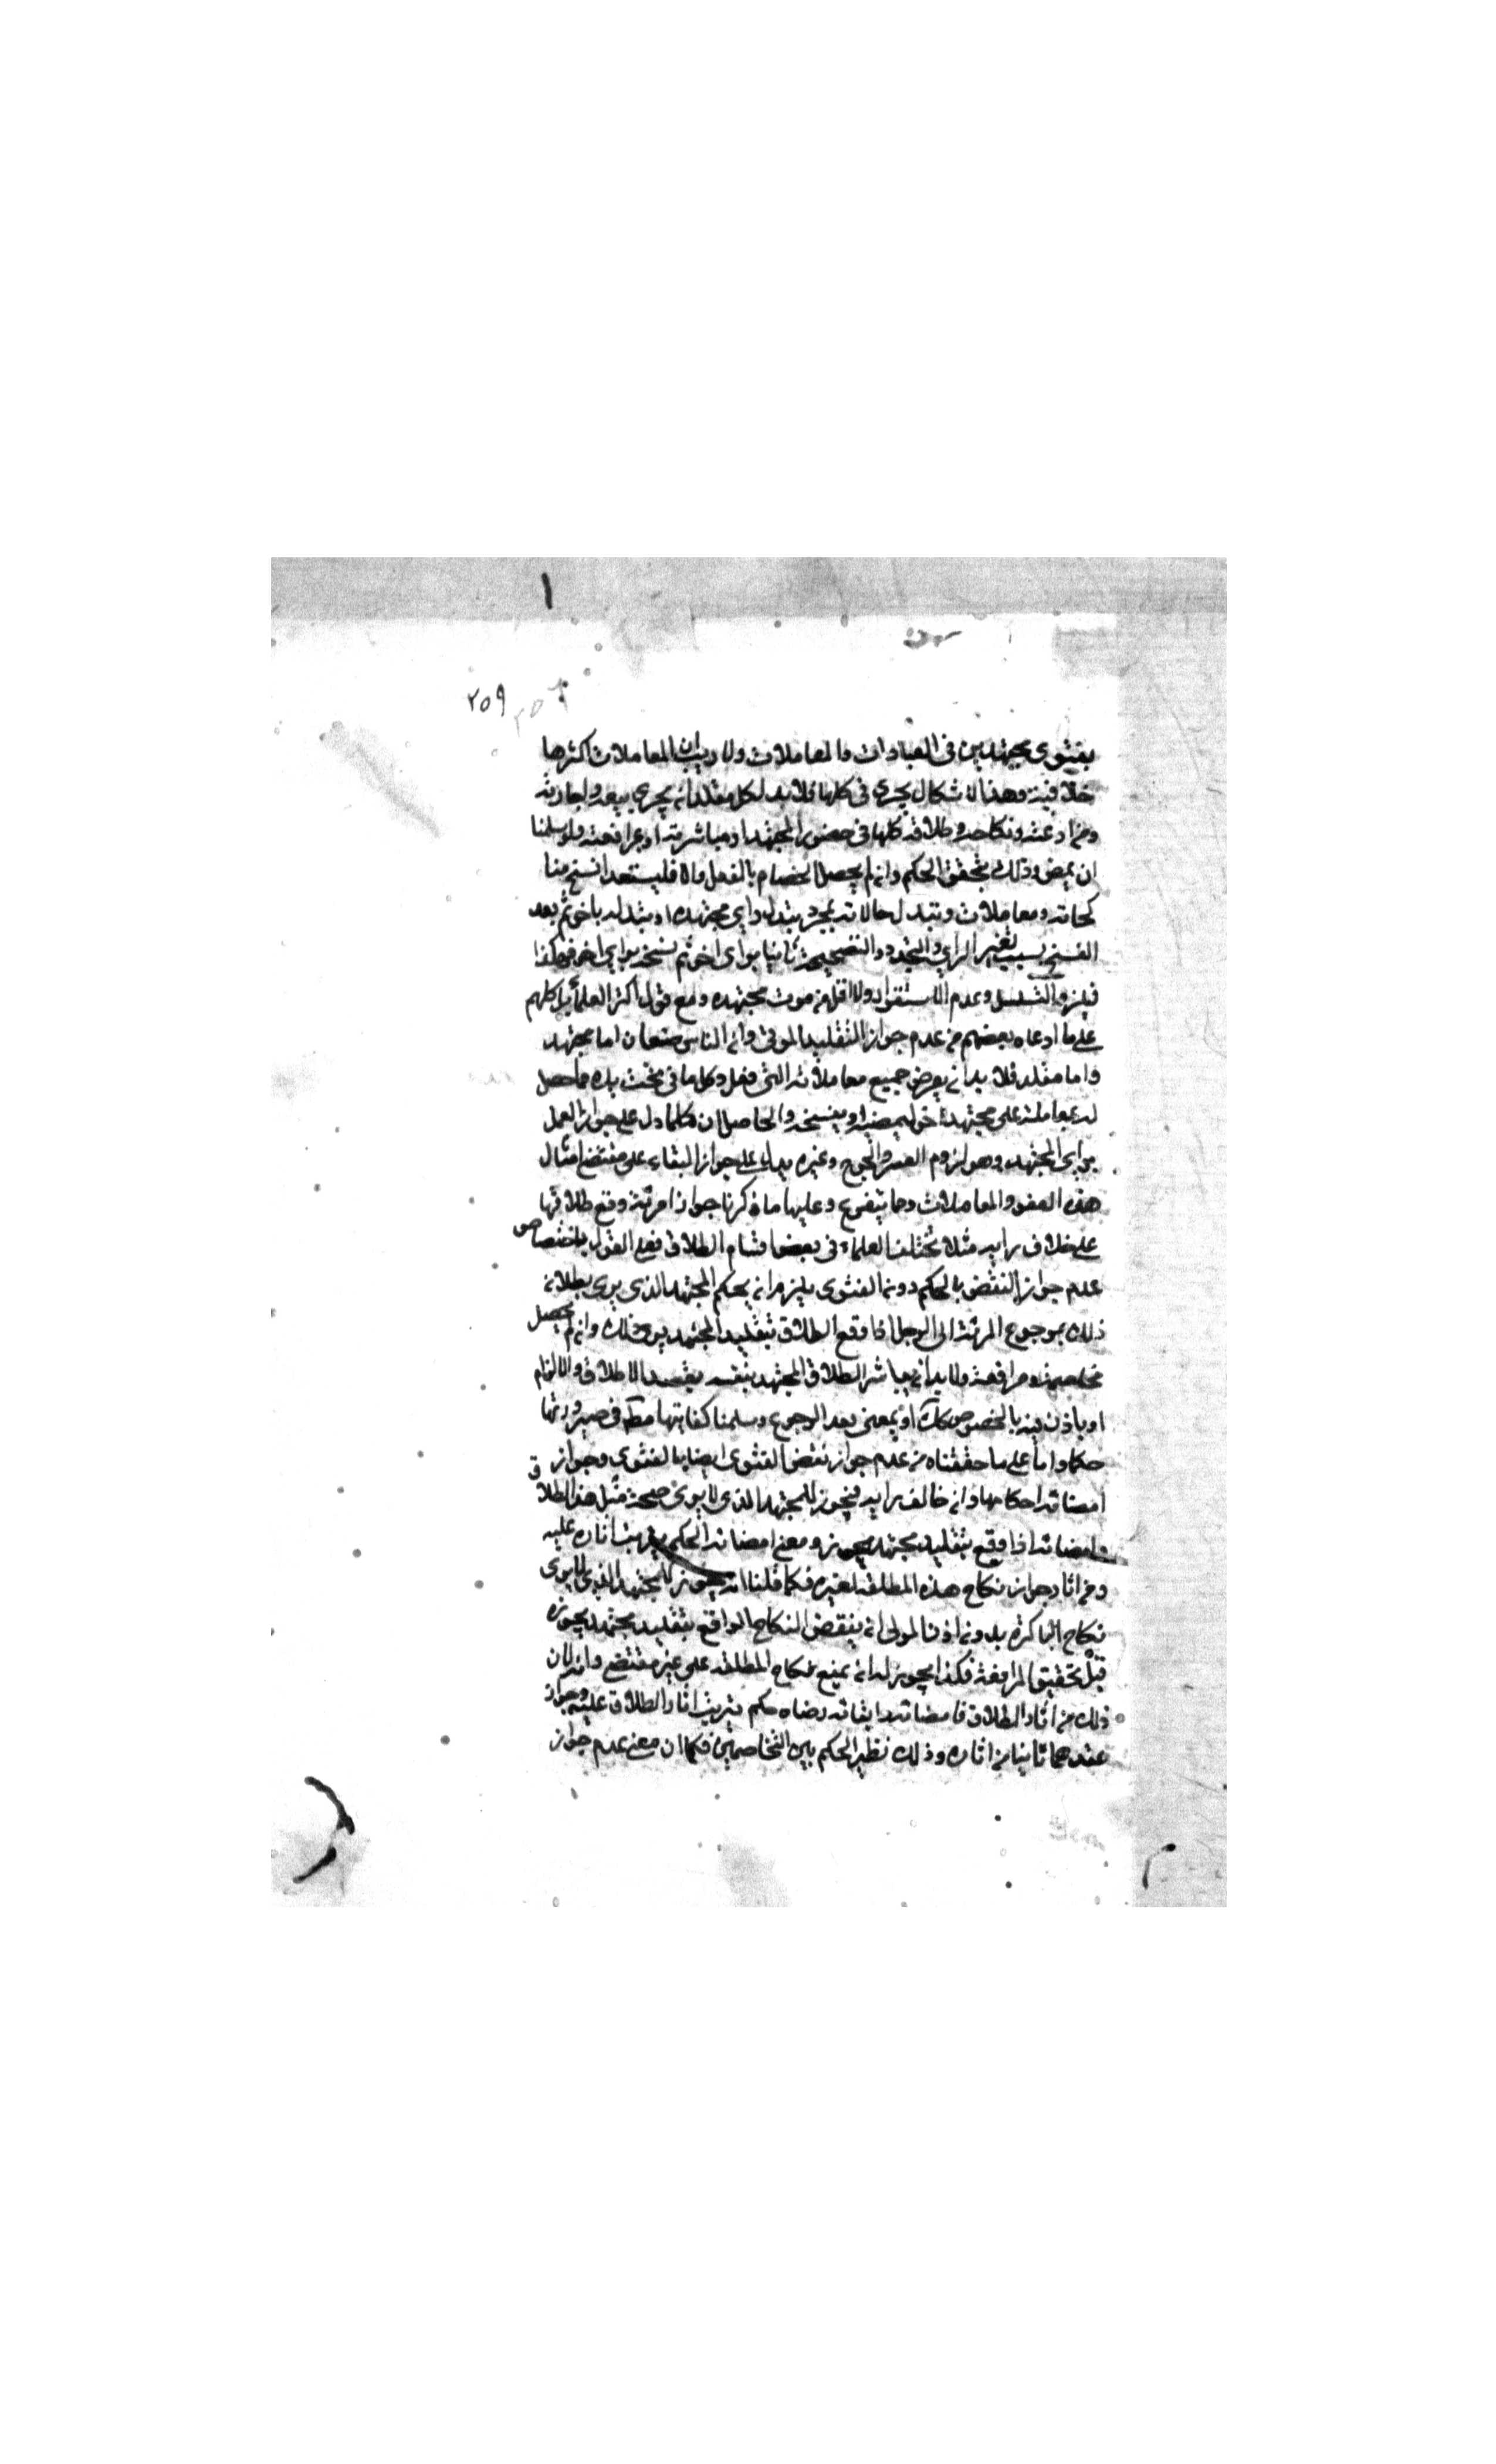 ٢٥٩
بفتوى مجتهدين فى العبادات والمعاملات ولا ريب ان المعاملات اكثرها
خلافية وهذا الاشكال يجرى فى كلها فلابد لكل مقلد ان يجرى بيعه واجارته
ومزارعته ونكاحه وطلاقه كلها فى حضور المجتهد او مباشرته او مرافعته ولو سلمنا
ان بمحض ذلك يتحقق الحكم وان لم يحصل الخصام بالفعل والا فليستعد انسخ منا
كحاته ومعاملات وتبدل حالاته بمجرد تبدل راى مجتهده او تبدله باخر ثم بعد
الفسخ بسبب تغير الراى والتجدد والتصحيحة ثانيا براى اخر ثم نسخه براى اخر وهكذا
فيلزم التسلسل وعدم الاستقرار ولا اقل من موت مجتهده ومع قول اكثر العلماء بل كلهم
على ما ادعاه بعضهم من عدم جواز التقليد الموتى وان الناس صنفان اما مجتهد
واما مقلد فلابد ان يعرض جميع معاملاته التى فعل وكل ما فى تحت يده مما حصل
له بمعاملة على مجتهد اخر ليمضيه او ينسخه والحاصل ان كلما دل على جواز العمل
براى المجتهد وهو لزوم العسر والحرج وغيره يدل على جواز البقاء على مقتضى امثال
هذه العقود والمعاملات ومما يتفرع وعليها ما ذكرنا جواز امرئة وقع طلاقها
على خلاف رايه مثلا تختلف العلماء فى بعض اقسام الطلاق فعلى القول باختصاص
عدم جواز النقض بالحكم دون الفتوى يلزم ان يحكم المجتهد الذى يرى بطلانه
ذلك بموجوع المرئة الى الرجل اذا وقع الطلاق بتقليد المجتهد يرى ذلك وان لم يحصل
مخاصمة ومرافعة ولابد ان يباشر الطلاق المجتهد بنفسه بقصد الاطلاق والالزام
او باذن فيه بالخصوص كك او بمعنى بعد الرجوع وسلمنا كفايتها مط فى صيرورتها
حكما واما على ما حققناه من عدم جواز نقض الفتوى ايضا بالفتوى وجواز
امضائه احكامها وان خالف رايه فيجوز للمجتهد الذى لا يرى صحة مثل هذا الطلاق
وامضائه اذا وقع بتقليد مجتهد يجوز ومعنى امضائه الحكم بترتب اثاره عليه
ومن اثاره جواز نكاح هذه المطلقة لغيره فكما قلنا انه يجوز للمجتهد الذى لا يرى
نكاح الباكرة بدون اذن المولى ان ينقض النكاح الواقع بتقليد مجتهد يجوزه
قبل تحقيق المرافعة فكذا يجوز له ان يمنع نكاح المطلقة على غير مقتضى وايه لان
ذلك من اثار الطلاق فامضائه وابقائه رضاه حكم بترتب اثار الطلاق عليه وجواز
عقدهما ثانيا من اثاره وذلك نظير الحكم بين التخاصمين فكما ان معنى عدم جواز